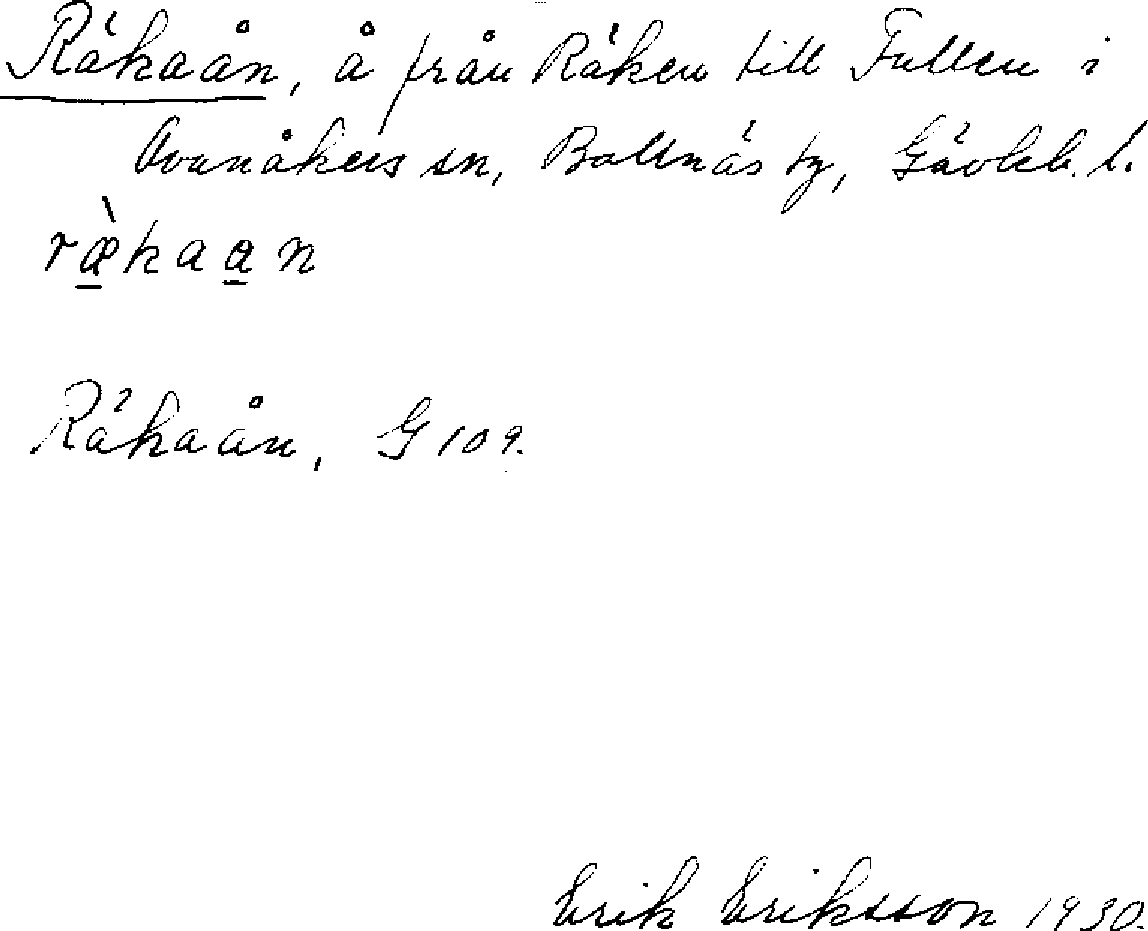 Räkaån, å från Räken till Fullen i
Ovanåkers sn, Bollnäs tg, Gävleb. l.
ræ̠̀kaa̠n
Räkaån, G 109.
Erik Eriksson 1930.